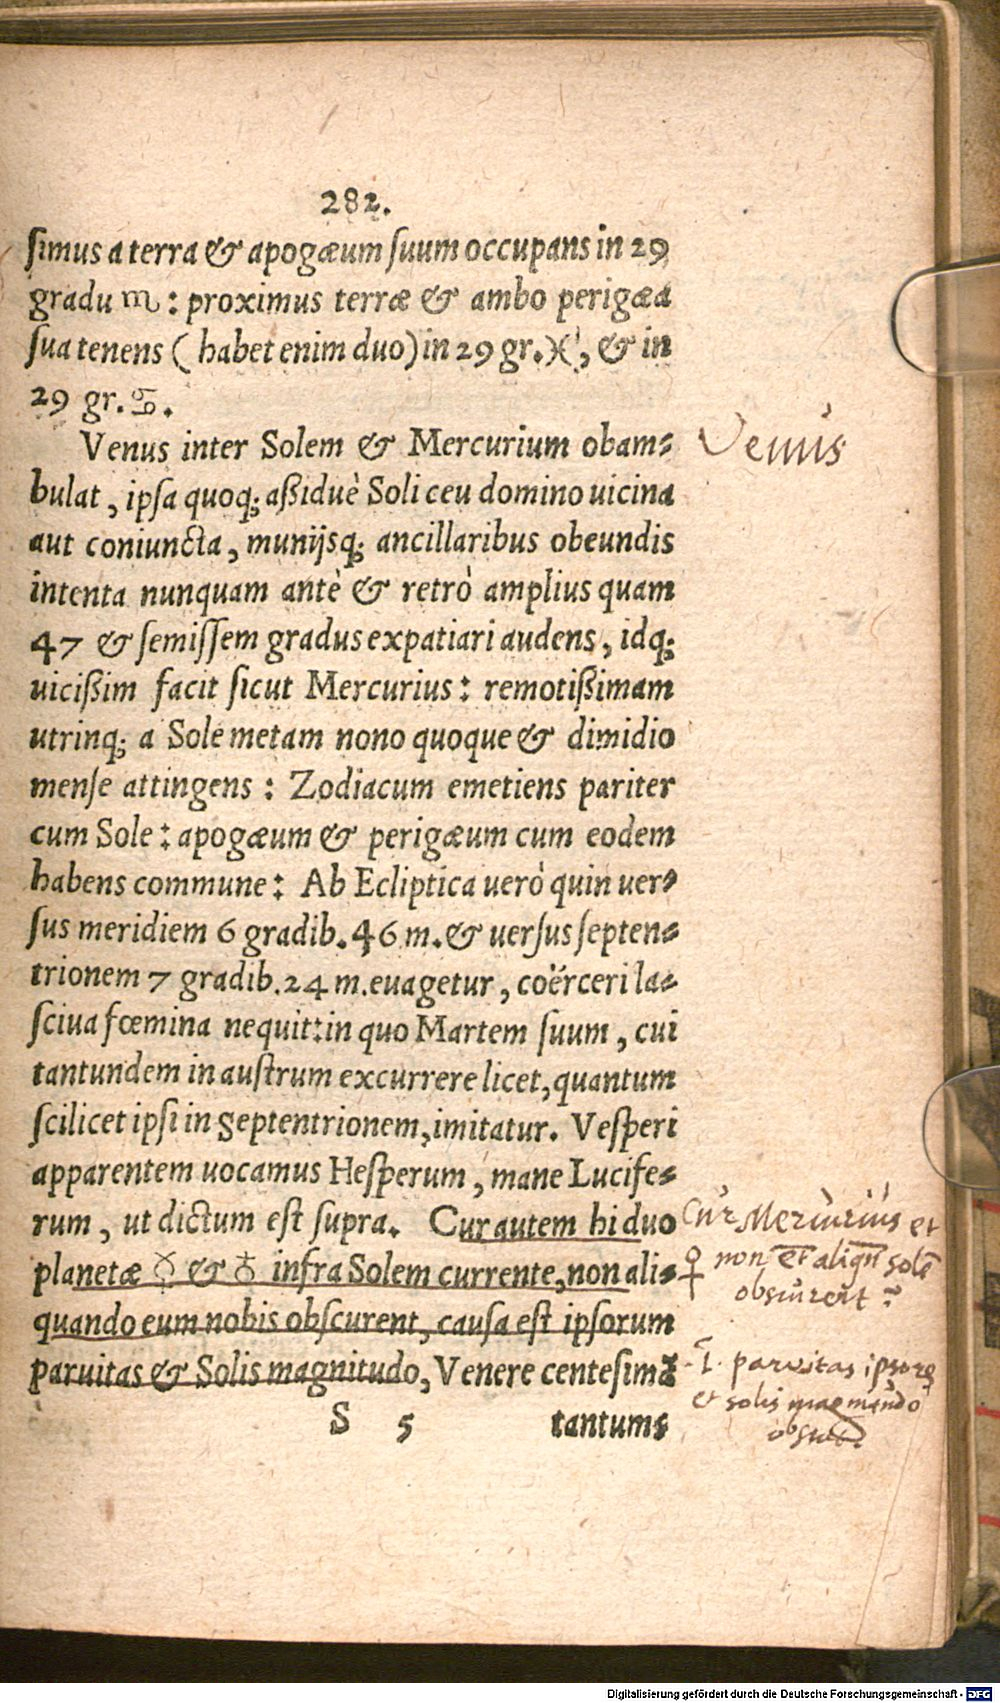 282.
simus a terra & apogæum suum occupans in 29
gradu ♏ : proximus terræ & ambo perigæa
sua tenens ( habet enim duo) in 29 gr. ♓, & in
29 gr. ♋.
Venus inter Solem & Mercurium obam-
bulat, ipsa quoq; aßiduè Soli ceu domino uicina
aut coniuncta, munijsq; ancillaribus obeundis
intenta nunquam antè & retrò amplius quam
47 & semissem gradus expatiari audens, idq;
uicißim facit sicut Mercurius : remotißimam
utrinq; a Sole metam nono quoque & dimidio
mense attingens : Zodiacum emetiens pariter
cum Sole : apogæum & perigæum cum eodem
habens commune : Ab Ecliptica uerò quin uer-
sus meridiem 6 gradib. 46 m. & uersus septen-
trionem 7 gradib. 24 m. euagetur, coërceri la-
sciua fœmina nequit: in quo Martem suum, cui
tantundem in austrum excurrere licet, quantum
scilicet ipsi in septentrionem, imitatur. Vesperi
apparentem uocamus Hesperum, mane Lucife-
rum, ut dictum est supra. Cur autem hi duo
planetæ ☿ & ♁ infra Solem currente, non ali-
quando eum nobis obscurent, causa est ipsorum
paruitas & Solis magnitudo, Venere centesima
S 5 tantum
Venus
Cur Mercurius et
♀ non aliqn̄ solē
obscurent ?
paruitas ipsorȝ
et solis
Digitalisierung gefördert durch die Deutsche Forschungsgemeinschaft - DFG